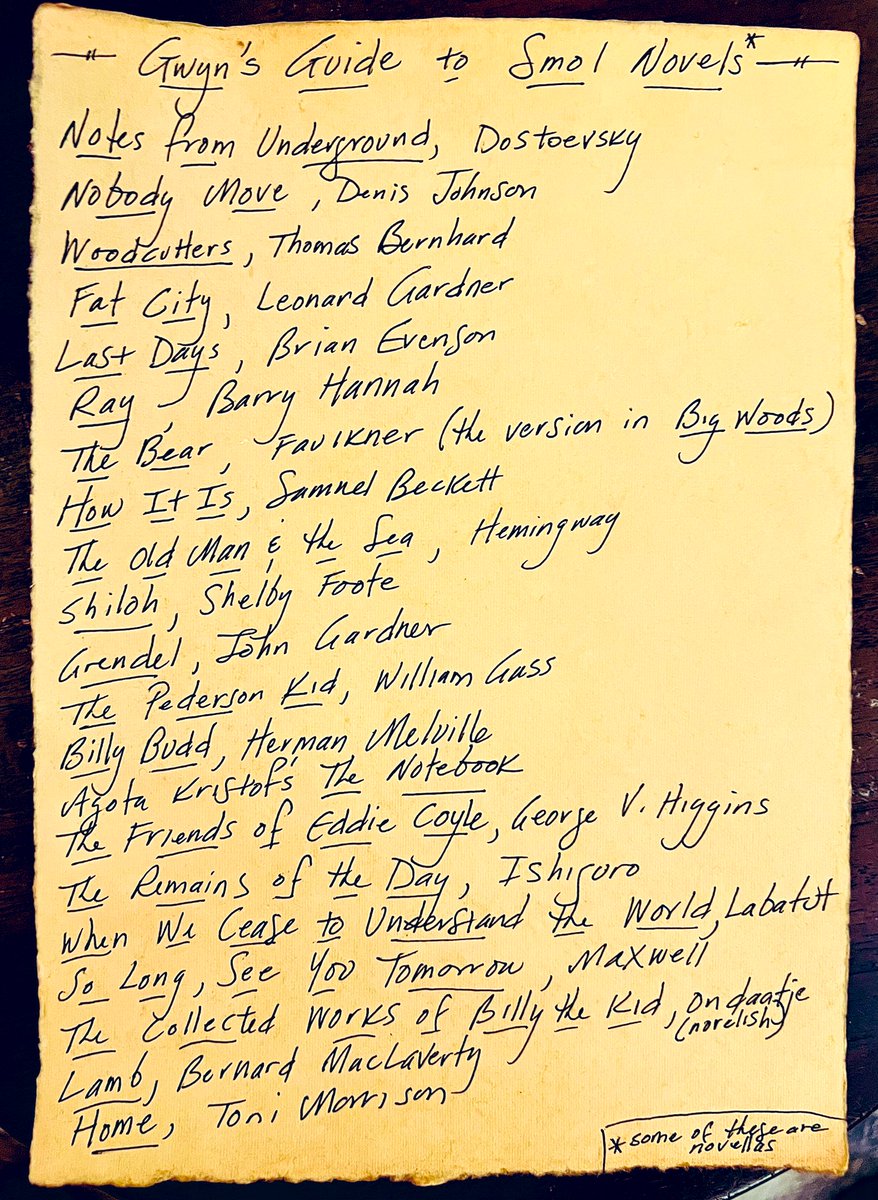 Gwyn's Guide to Smol Novels*
Notes from Underground, Dostoevsky
Nobody Move, Denis Johnson
Woodcutters, Thomas Bernhard
Fat City, Leonard Gardner
Last Days, Brian Evenson
Ray, Barry Hannah
The Bear, Faulkner (the version in Big Woods)
How It Is, Samuel Beckett
The Old Man & the Sea, Hemingway
Shiloh, Shelby Foote
Grendel, John Gardner
The Pederson Kid, William Gass
Billy Budd, Herman Melville
Agota Kristof's The Notebook
The Friends of Eddie Coyle, George V. Higgins
The Remains of the Day, Ishiguro
When We Cease to Understand the World, Labatut
So Long, See You Tomorrow, Maxwell
The Collected Works of Billy the Kid, Ondaatje
(novelish)
Lamb, Bernard MacLaverty
Home, Toni Morrison
*some of these are
novellas